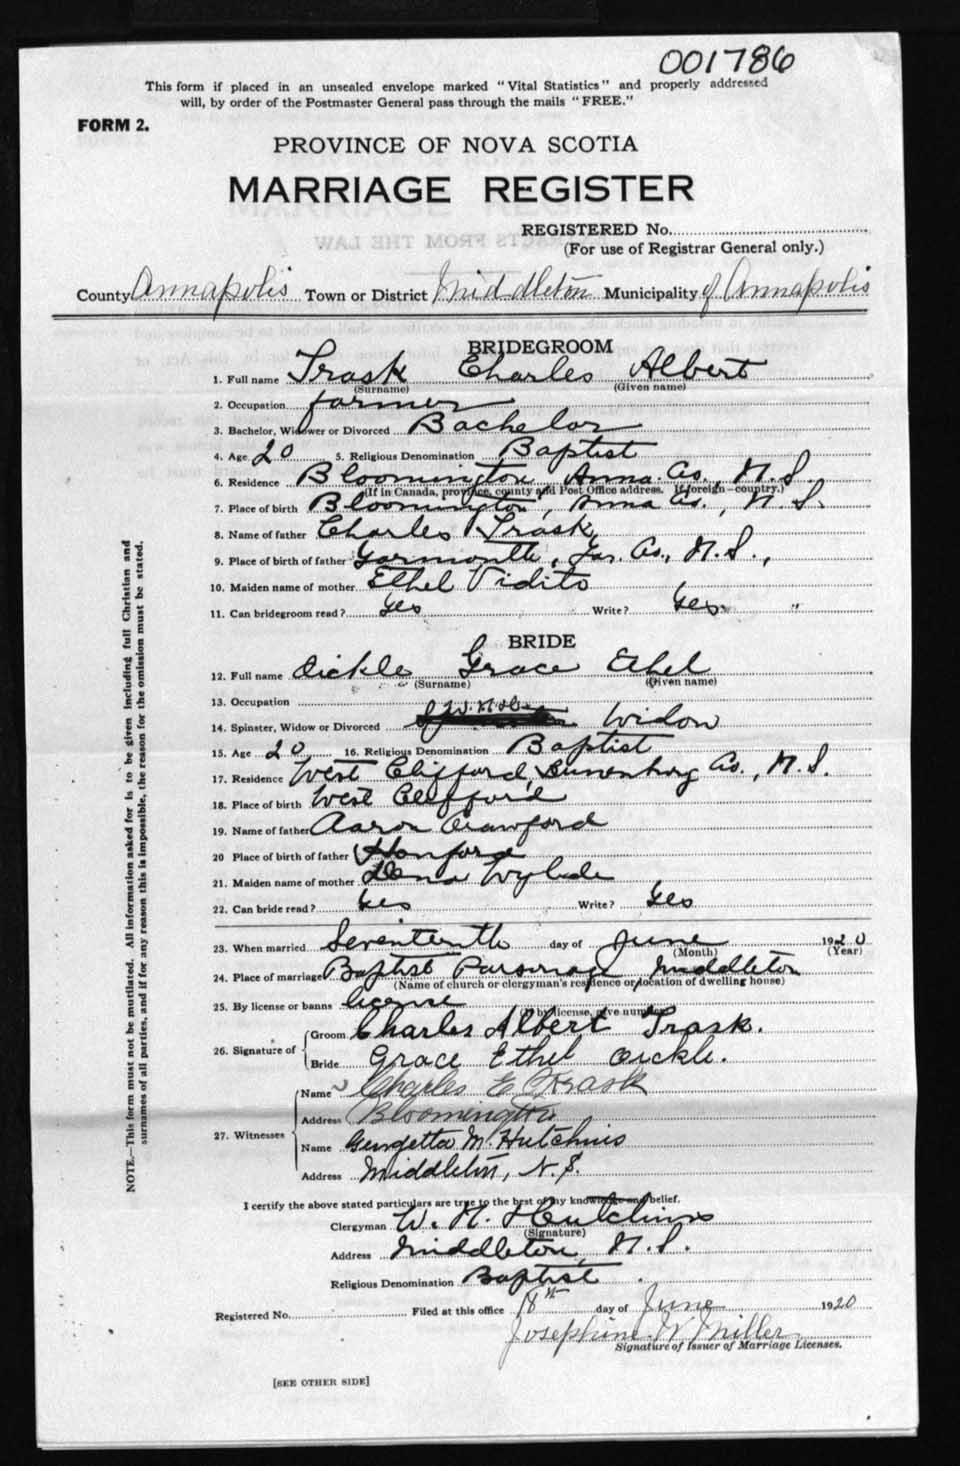 001786
This form if placed in an unsealed envelope marked "Vital Statistics" and properly addressed
will, by order of the Postmaster General pass through the mails "FREE."
FORM 2.
PROVINCE OF NOVA SCOTIA
MARRIAGE REGISTER
REGISTERED No.
(For use of Registrar General only.)
County Annapolis Town or District Middleton Municipality of Annapolis
BRIDEGROOM
1. Full name Trask Charles Albert
(Surname) (Given name)
2. Occupation farmer
3. Bachelor, Widower or Divorced Bachelor
4. Age 20 5. Religious Denomination Baptist
6. Residence Bloomington Anna. Co., N.S.
(If in Canada, province, county and Post Office address. If foreign—country.)
7. Place of birth Bloomington, Anna Co., N.S.
8. Name of father Charles Trask
9. Place of birth of father Yarmouth, Yar. Co., N.S.,
10. Maiden name of mother Ethel Vidito
11. Can bridegroom read? Yes Write? Yes "
BRIDE
12. Full name Oickle Grace Ethel
(Surname) (Given name)
13. Occupation
14. Spinster, Widow or Divorced W.N.H. Widow
15. Age 20 16. Religious Denomination Baptist
17. Residence West Clifford, Lunenburg Co., N.S.
18. Place of birth West Clifford
19. Name of father Aaron Crawford
20 Place of birth of father
21. Maiden name of mother Lena
22. Can bride read? Yes Write? Yes
23. When married Seventeenth day of June 1920
(Month) (Year)
24. Place of marriage Baptist Parsonage, Middleton
(Name of church or clergyman's residence or location of dwelling house)
25. By license or banns license
(If by license, give number)
26. Signature of Groom Charles Albert Trask.
Bride Grace Ethel Oickle.
27. Witnesses Name Charles E Trask
Address Bloomington
Name Georgetta M. Hutchins
Address Middleton, N.S.
I certify the above stated particulars are true to the best of my knowledge and belief.
Clergyman W. N. Hutchins
(Signature)
Address Middleton, N.S.
Religious Denomination Baptist.
Registered No. Filed at this office 18th day of June 1920
Josephine W Miller
Signature of Issuer of Marriage Licenses.
[SEE OTHER SIDE]
NOTE.—This form must not be mutilated. All information asked for is to be given including full Christian and
surnames of all parties, and if for any reason this is impossible, the reason for the omission must be stated.